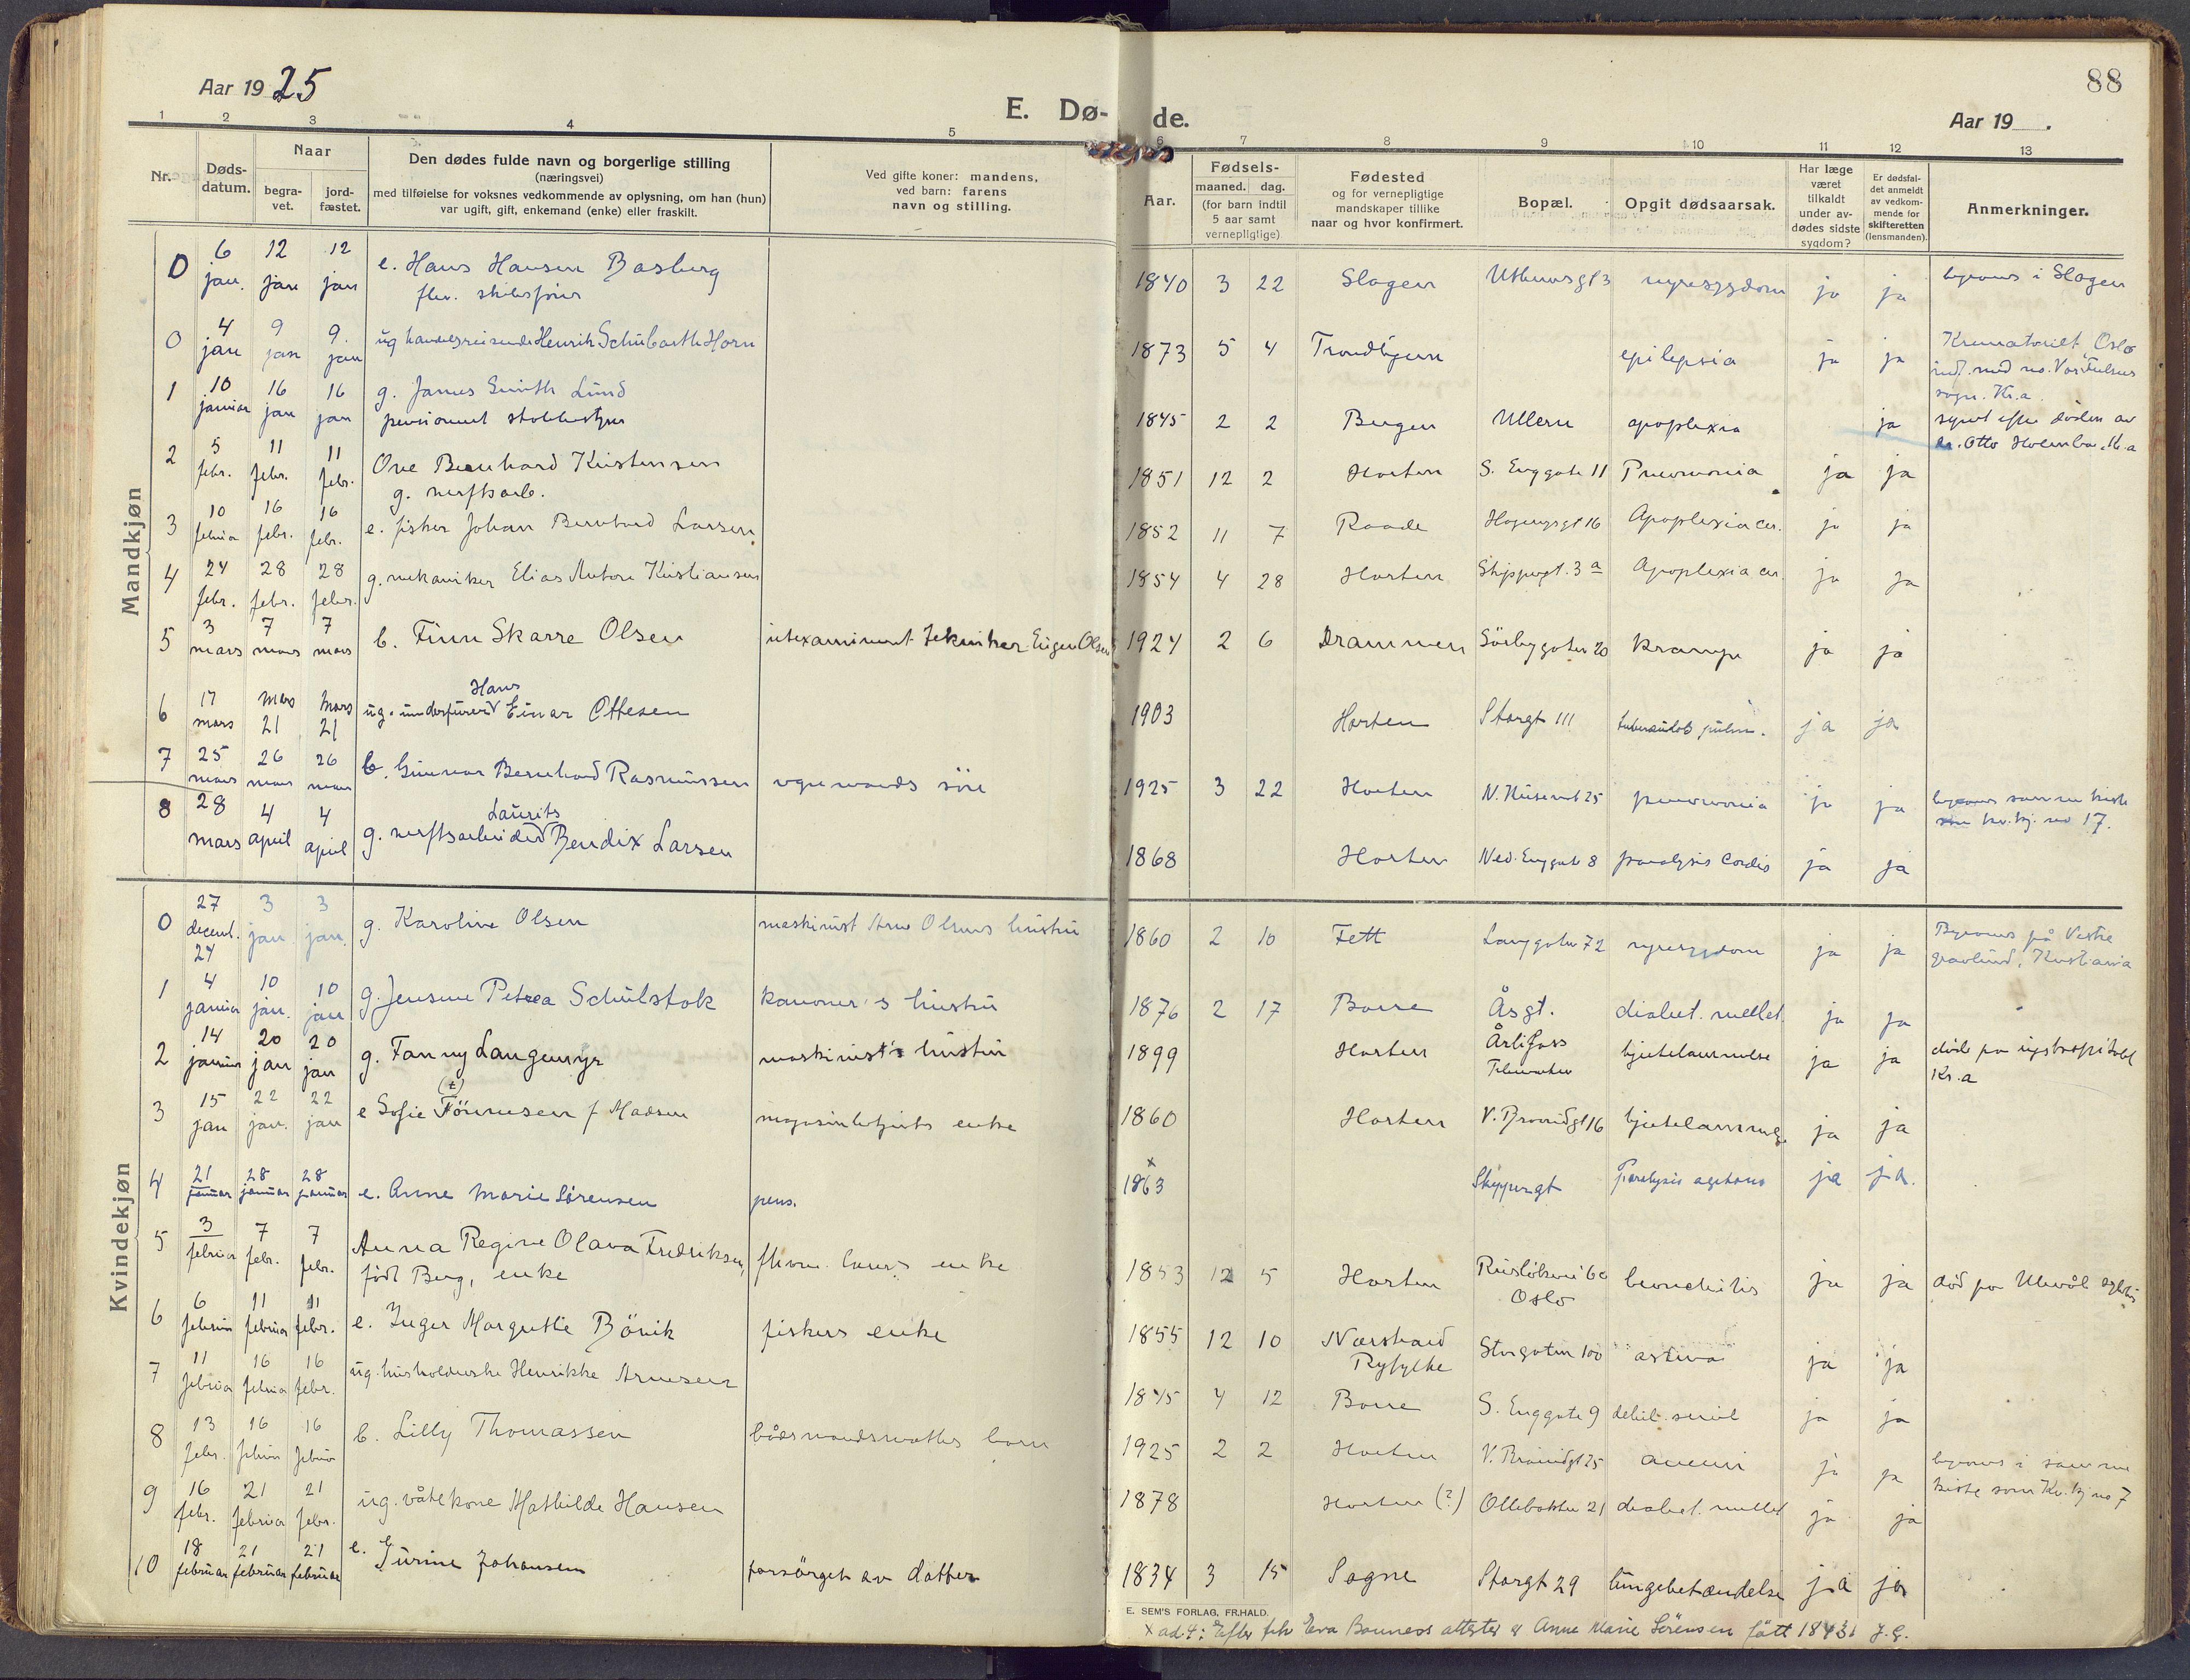 88
Aar 1925
E. Dø-
de.
Aar 19 .
1 2 3 4 5 6 7 8 9 10 11 12 13
Nr.
Døds-
datum.
Naar
begra-
vet.
jord-
fæstet.
Den dødes fulde navn og borgerlige stilling
(næringsvei)
med tilføielse for voksnes vedkommende av oplysning, om han (hun)
var ugift, gift, enkemand (enke) eller fraskilt.
Ved gifte koner: mandens,
ved barn: farens
navn og stilling.
Aar.
Fødsels-
maaned. dag.
(for barn indtil
5 aar samt
vernepligtige)
Fødested
og for vernepligtige
mandskaper tillike
naar og hvor konfirmert.
Bopæl.
Opgit dødsaarsak.
Har læge
været
tilkaldt
under av-
dødes sidste
sygdom?
Er dødsfal-
det anmeldt
av vedkom-
mende for
skifteretten
(lensmanden).
Anmerkninger.
Mandkjøn
0 6 12 12 e. Hans Hansen Basberg 1840 3 22 Slagen nyresygdom ja ja begraves i Slagen
jan. jan jan flv. skibsfører
0 4 9 9. ug handelsreisende Henrik Schübarth Horn 1873 5 4 Trondhjem epilepsia ja ja Krematoriet Oslo
jan jan jan
sogn. Kr.a.
1 10 16 16 g. James Smith Lund 1845 2 2 Bergen Ullern apoplexia ja synet efter døden av
januar jan jan pensionert dr. Otto Kr.a
2 5 11 11 Ove Bernhard Kristensen 1851 12 2 Horten S. Enggate 11 Pneumonia ja ja
febr. febr. febr. g. verftsarb.
3 10 16 16 e. fisker Johan Bernhard Larsen 1852 11 7 Raade 16 Apoplexia cer. ja ja
februar febr. febr.
4 24 28 28 g. mekaniker Elias Anton Kristiansen 1854 4 28 Horten Skippergt. 3 a Apoplexia cer. ja ja
febr. febr. febr.
5 3 7 7 b. Finn Skarre Olsen utexaminert tekniker Eigen Olsen 1924 2 6 Drammen Sörbygaten 20 Krampe ja ja
mars mars mars
6 17 mars mars Hans
mars 21 21 ug. underfurer Einar Ottesen 1903 Horten Storgt 111 tuberculos pulm. ja ja
7 25 26 26 b. Gunnar Bernhard Rasmussen vognmands sön 1925 3 22 Horten 25 pneumonia ja ja begraves samme kiste
mars mars mars som kv.kj. no 17.
8 28 4 4 Laurits
mars april april g. verftsarbeider Bendix Larsen 1868 Horten Ned. Enggate 8 paralysis Cordis ja ja
Kvindekjøn
0 27 3 3 g. Karoline Olsen maskinist Arne Olsens hustru 1860 2 10 Fett Langgaten 72 nyresygdom ja ja Begraves på Vestre
decemb. jan. jan. gravlund, Kristiania
24
1 4 10 10 g. Jensine Petrea Schülstok kanoner's hustru 1876 2 17 Borre Åsgt. diabet. mellet. ja ja
januar jan. jan
2 14 20 20 g. Fanny Langemyr maskinist's hustru 1899 Horten Årlifoss hjertelammelse ja ja döde på rigshospitalet
januar jan jan Telemarken Kr.a
3 15 22 22 e Sofie Tönnesen f Madsen enke 1860 Horten 16 hjertelammelse ja ja
jan jan. jan
4 21 28 28 e. Anne Marie Sörensen pens. x 1863 Skippergt Paralysis agitans ja ja.
januar januar januar
5 3 7 7 Anna Regine Olava Fredriksen, enke 1853 12 5 Horten bronchitis ja ja död på Ullevål
februar febr. febr. födt Berg, enke Oslo
6 6 11 11 e. Inger Margrethe Börvik fiskers enke 1855 12 10 Nærstrand Storgaten 100 astma ja ja
februar februar febr. Ryfylke
7 11 16 16 ug. husholderske Henrikke Arnesen 1845 4 12 Borre S. Enggate 9 debil. senil ja ja
februar februar febr.
8 13 16 16 b. Lilly Thomassen båtsmandsmatts barn 1925 2 2 Horten 25 ja ja begraves i samme
febr. februar februar kiste som Kv. kj no 7
9 16 21 21 ug. våtekone Mathilde Hansen 1878 Horten (?) Ollebakken 21 diabet. mellet ja ja
febr. februar febr.
10 18 21 21 e. Gurine Johansen forsörget av datter 1834 3 15 Sogne Storgt 29 lungebetændelse ja ja
februar februar februar
E. SEM'S FORLAG, FR.HALD.
x ad. 4: Efter frk Eva Bonnevis attester er Anne Marie Sörensen fött 1843. J.G.